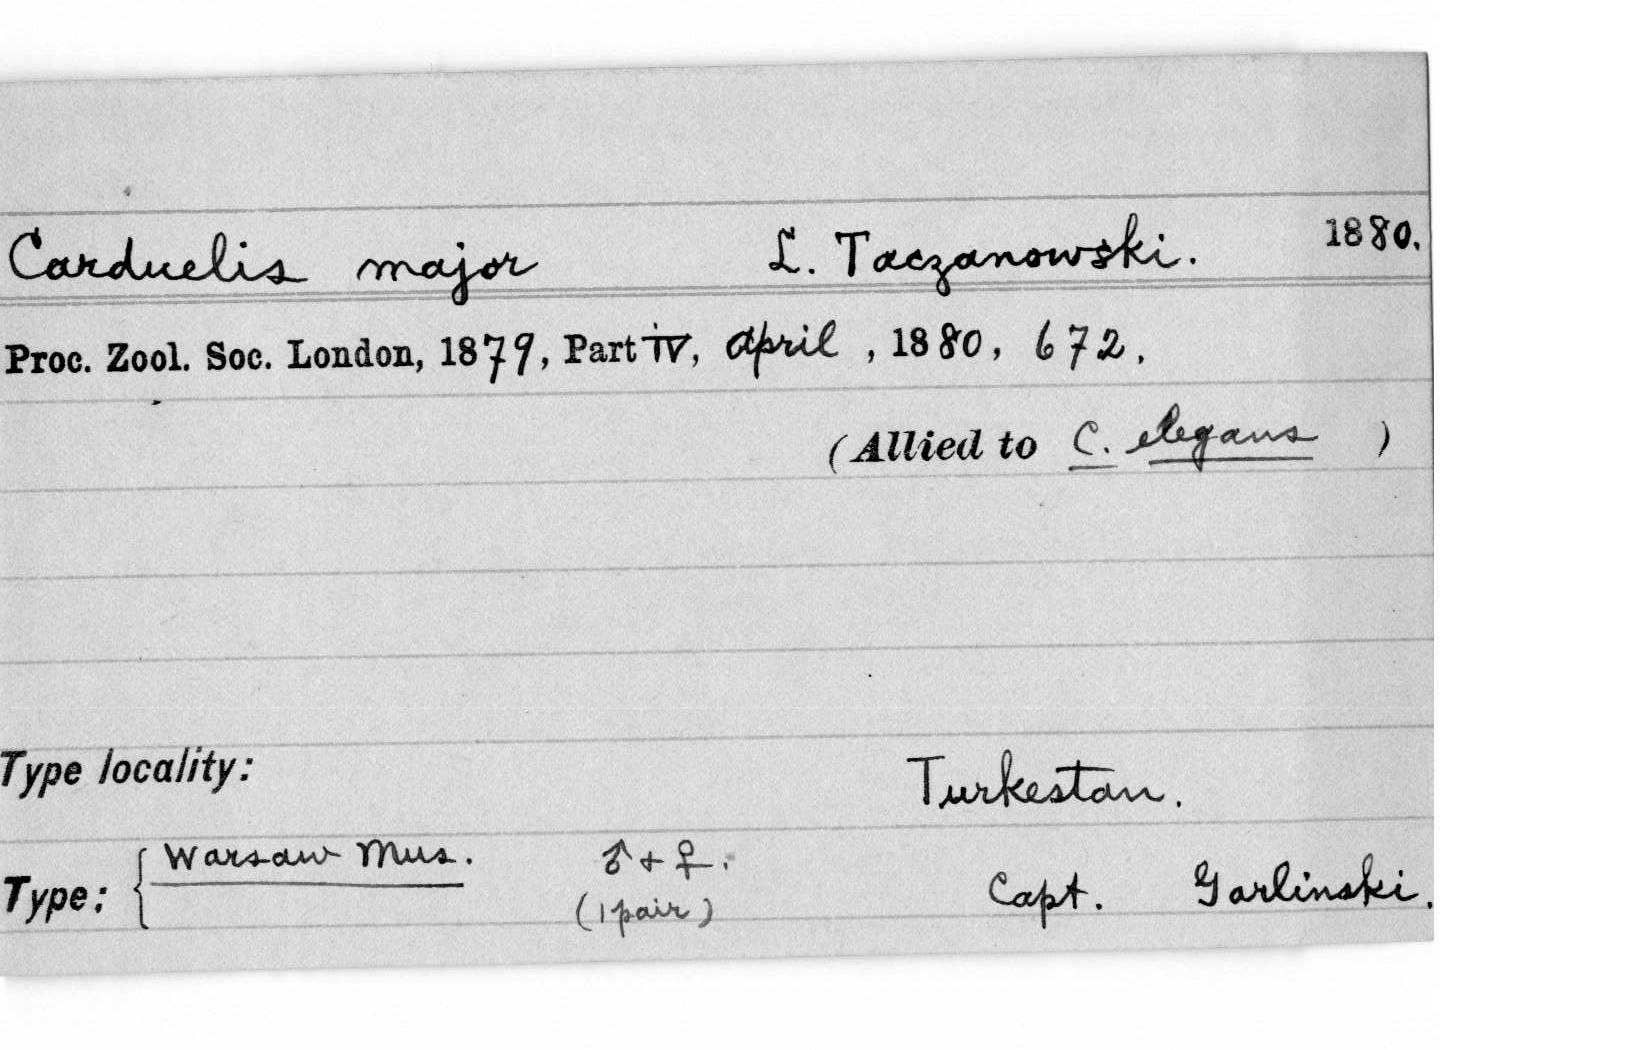 Carduelis major L. Taczanowski. 1880.
Proc. Zool. Soc. London, 1879, Part iv, april, 1880, 672.
(Allied to C. elegans)
Type locality: Turkestan.
Type: { Warsaw Mus. ♂ + ♀. Capt. Garlinski.
(1 pair)